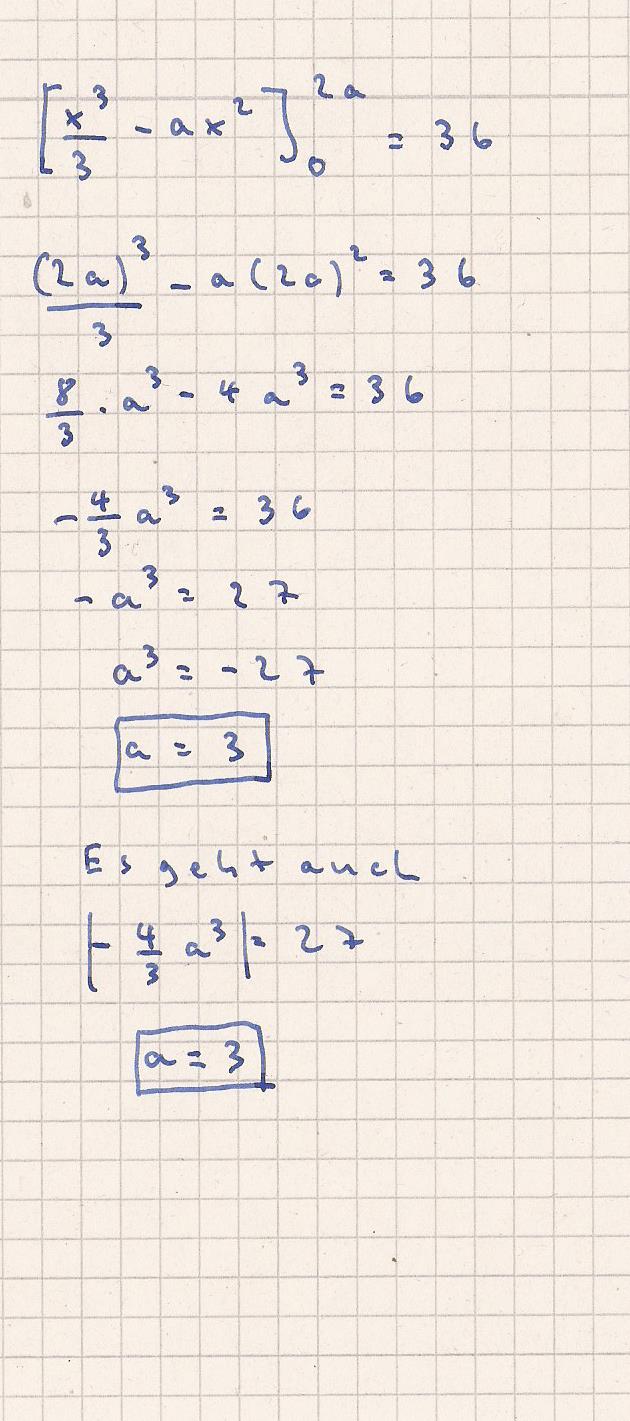 [x³/3 - ax²]₀²ᵃ = 36
(2a)³/3 - a(2a)² = 36
8/3 · a³ - 4a³ = 36
-4/3 a³ = 36
- a³ = 27
a³ = -27
a = 3
Es geht auch
|- 4/3 a³| = 27
a = 3